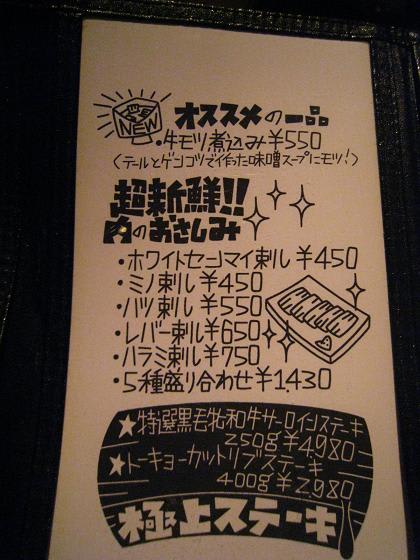 NEW
オススメの一品
・牛モツ煮込み¥550
(テールとゲンコツで作った味噌スープにモツ!)
超新鮮!!
肉のおさしみ
・ホワイトセンマイ刺し¥450
・ミノ刺し¥450
・ハツ刺し¥550
・レバー刺し¥650
・ハラミ刺し¥750
・5種盛り合わせ¥1430
★特選黒毛牝和牛サーロインステーキ
250g¥4,980
★トーキョーカットリブステーキ
400g¥2,980
極上ステーキ